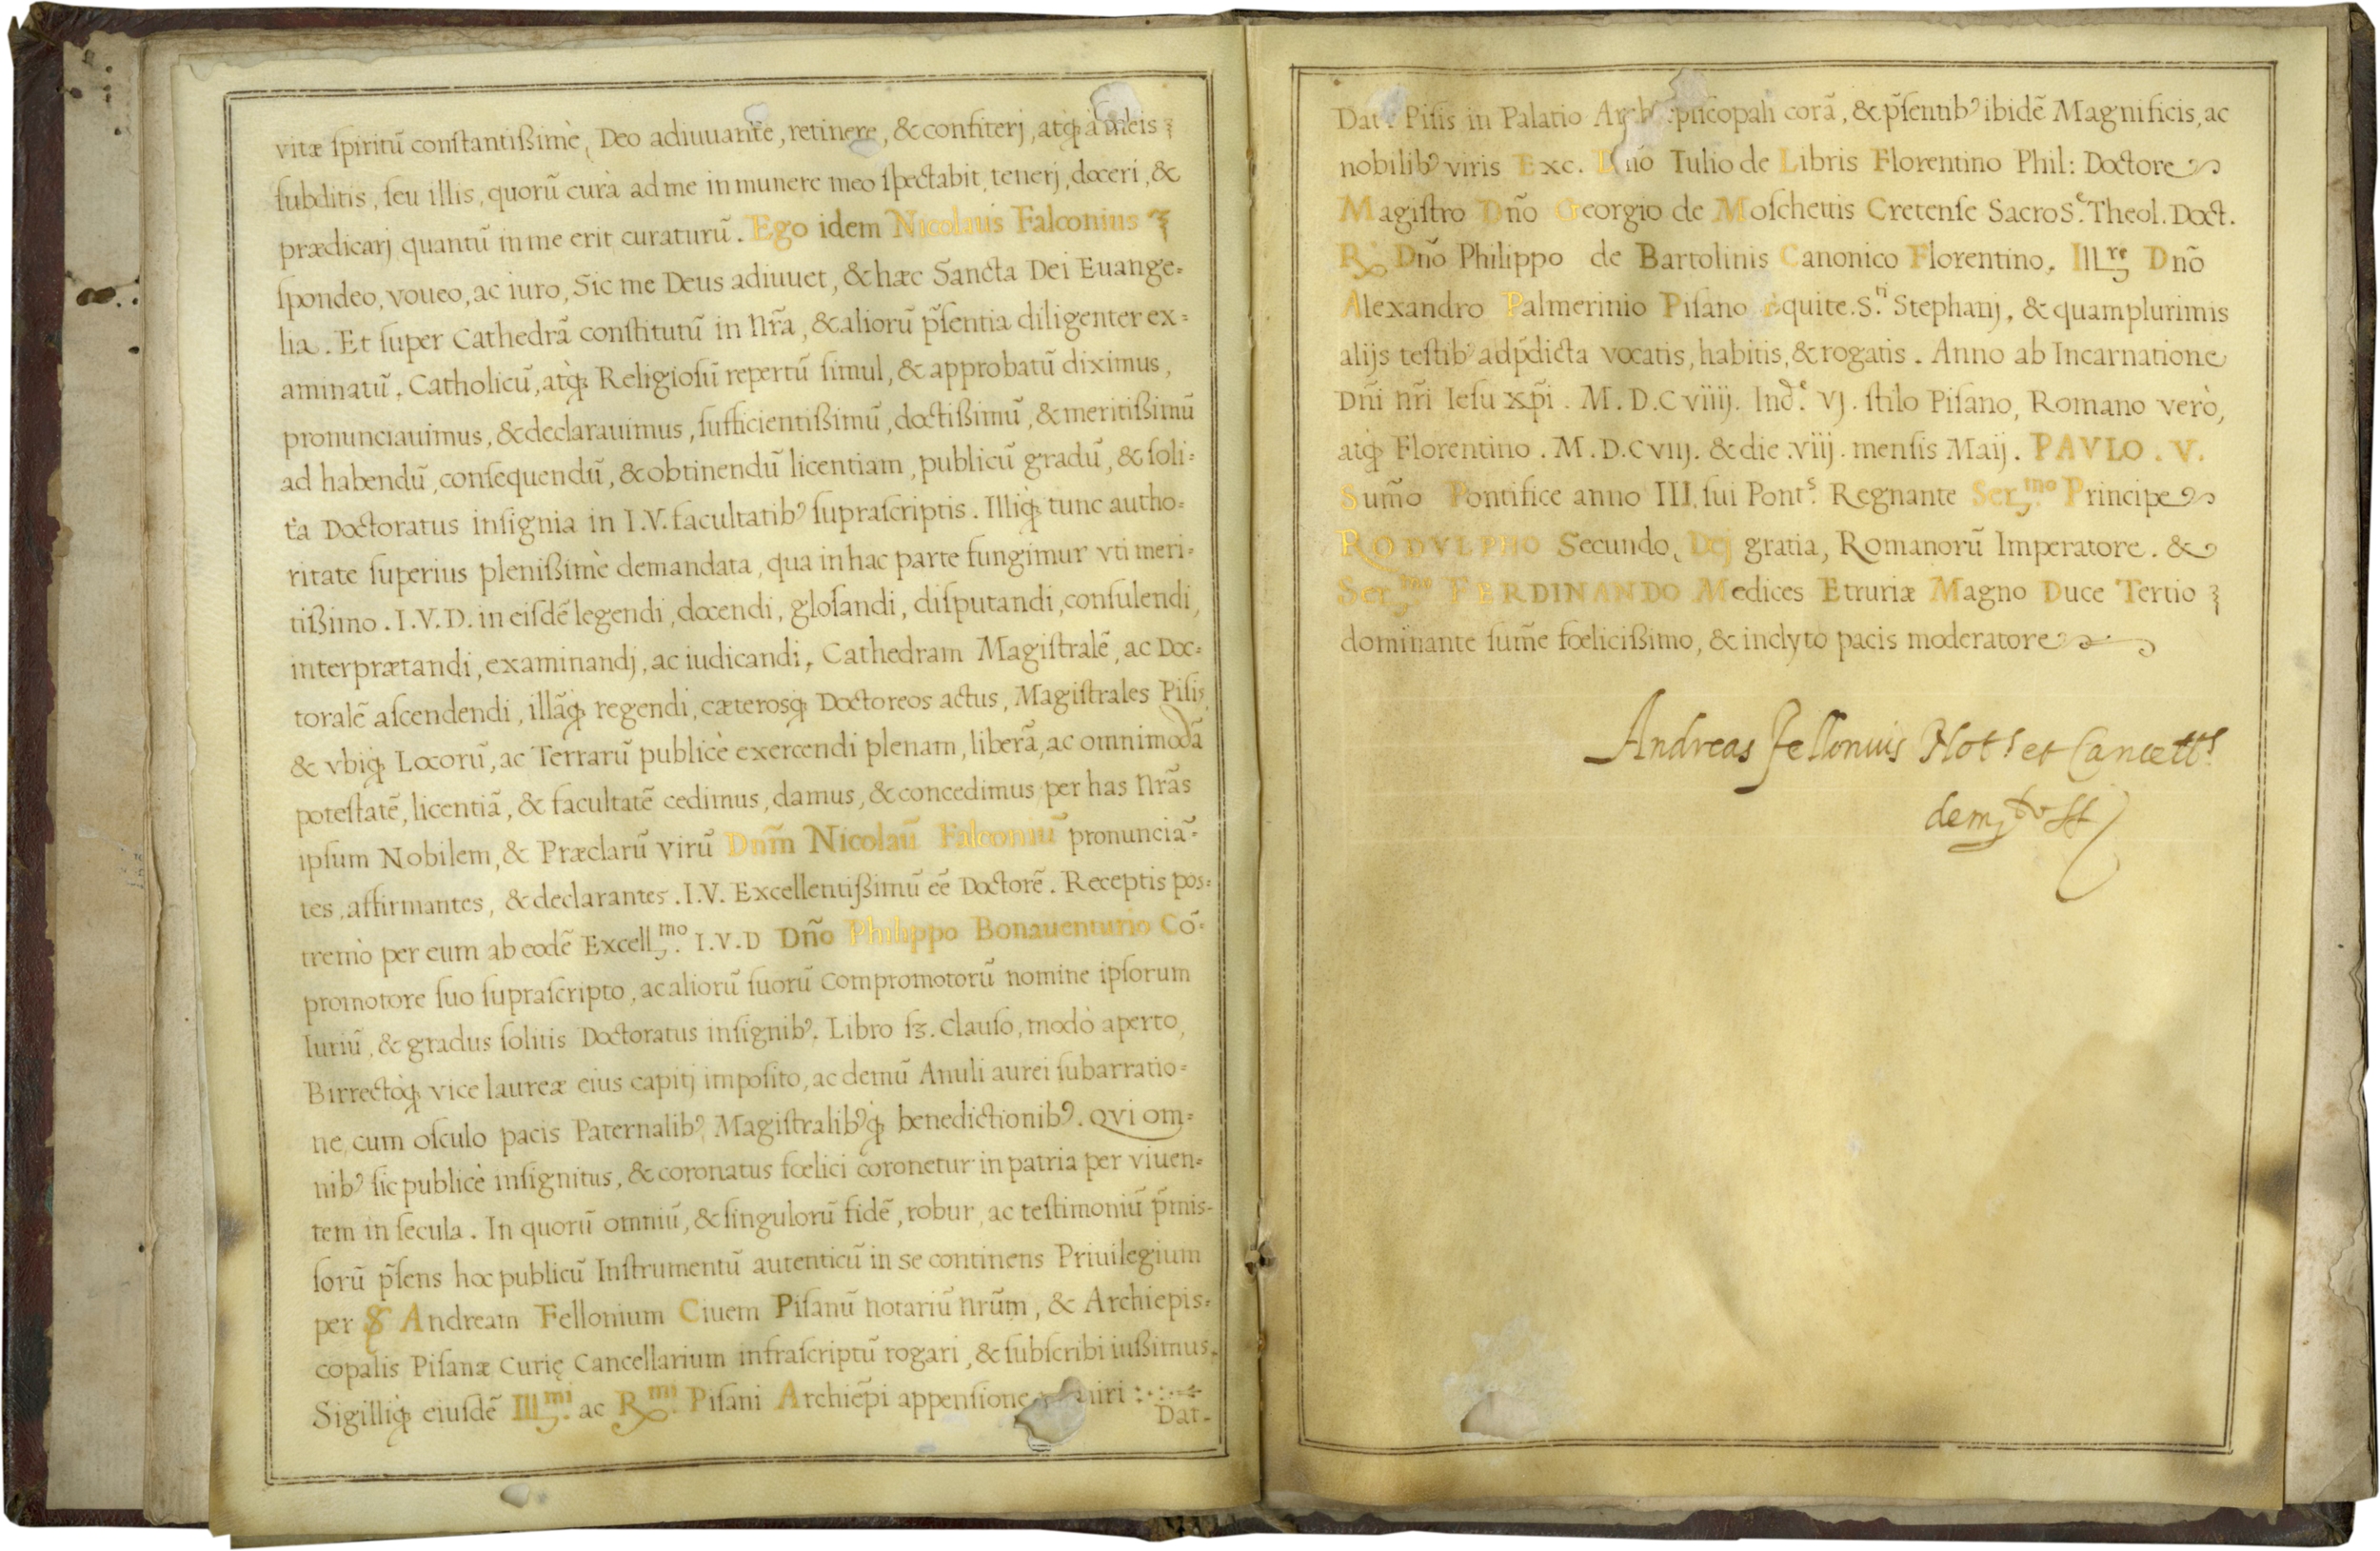 vitæ ſpiritū conſtantißimè, Deo adiuuante, retinere, & confiterj, atq; à meis
ſubditis, ſeu illis, quorū cura ad me in munere meo ſpectabit, tenerj, doceri, &
prædicarj quantū in me erit curaturū. Ego idem Nicolaus Falconius
ſpondeo, voueo, ac iuro, Sic me Deus adiuuet, & hæc Sancta Dei Euange=
lia. Et ſuper Cathedrā conſtitutū in nr̃a, & aliorū p̃ſentia diligenter ex=
aminatū, Catholicū, atq; Religioſū repertū ſimul, & approbatū diximus,
pronunciauimus, & declarauimus, ſufficientißimū, doctißimū, & meritißimū
ad habendū, conſequendū, & obtinendū licentiam, publicū gradū, & ſoli=
ta Doctoratus inſignia in I.V. facultatibꝰ ſupraſcriptis. Illiq; tunc autho=
ritate ſuperius plenißimè demandata, qua in hac parte fungimur vti meri=
tißimo. I.V.D. in eiſdē legendi, docendi, gloſandi, diſputandi, conſulendi,
interprætandi, examinandj, ac iudicandi, Cathedram Magiſtralē, ac Doc=
toralē aſcendendi, illāq; regendi, cæterosq; Doctoreos actus, Magiſtrales Piſis,
& vbiq; Locorū, ac Terrarū publicè exercendi plenam, liberā, ac omnimodā
poteſtatē, licentiā, & facultatē cedimus, damus, & concedimus per has nr̃as
ipſum Nobilem, & Præclarū virū Dnm̃ Nicolaū Falconiū pronunciā=
tes, affirmantes, & declarantes. I.V. Excellentißimū eē Doctorē. Receptis pos=
tremò per eum ab eodē Excell.mo I.V.D Dño Philippo Bonauenturio Cō=
promotore ſuo ſupraſcripto, ac aliorū ſuorū Compromotorū nomine ipſorum
Iuriū, & gradus ſolitis Doctoratus inſignibꝰ. Libro ſꝫ. Clauſo, modò aperto,
Birrectoq; vice laureæ eius capitj impoſito, ac demū Anuli aurei ſubarratio=
ne, cum oſculo pacis Paternalibꝰ, Magiſtralibꝰq; benedictionibꝰ. QVI om=
nibꝰ ſic publicè inſignitus, & coronatus fœlici coronetur in patria per viuen=
tem in ſecula. In quorū omniū, & ſingulorū fidē, robur, ac teſtimoniū p̃miſ-
ſorū p̃ſens hoc publicū Inſtrumentū autenticū in se continens Priuilegium
per Andream Fellonium Ciuem Piſanū notariū nrūm, & Archiepis=
copalis Piſanæ Curię Cancellarium infraſcriptū rogari, & ſubſcribi iußimus,
Sigilliq; eiuſdē Ill.mi ac R.mi Piſani Archiep̃i appenſione
Dat-
Dat. Piſis in Palatio corā, & p̃ſentibꝰ ibidē Magnificis, ac
nobilibꝰ viris Exc. Dño Iulio de Libris Florentino Phil: Doctore
Magiſtro Dño Georgio de Moſchettis Cretenſe Sacro S.e Theol. Doct.
R. Dño Philippo de Bartolinis Canonico Florentino, Ill.re Dño
Alexandro Palmerinio Piſano Equite. S.ti Stephanj, & quamplurimis
alijs teſtibꝰ ad p̃dicta vocatis, habitis, & rogatis. Anno ab Incarnatione
Dñi nr̃i Ieſu xp̃i. M.D.C viiij. Ind.e VJ. ſtilo Piſano, Romano verò,
atq; Florentino. M.D.C VIIJ. & die .viij. menſis Maij. PAVLO. V.
Sum̃o Pontifice anno III. ſui Pont.s Regnante Ser.mo Principe
RODVLPHO Secundo, Dej gratia, Romanorū Imperatore. &
Ser.mo FERDINANDO Medices Etruriæ Magno Duce Tertio
dominante ſum̃e fœlicißimo, & inclyto pacis moderatore
Andreas Fellonius Not.s et Cancell.s